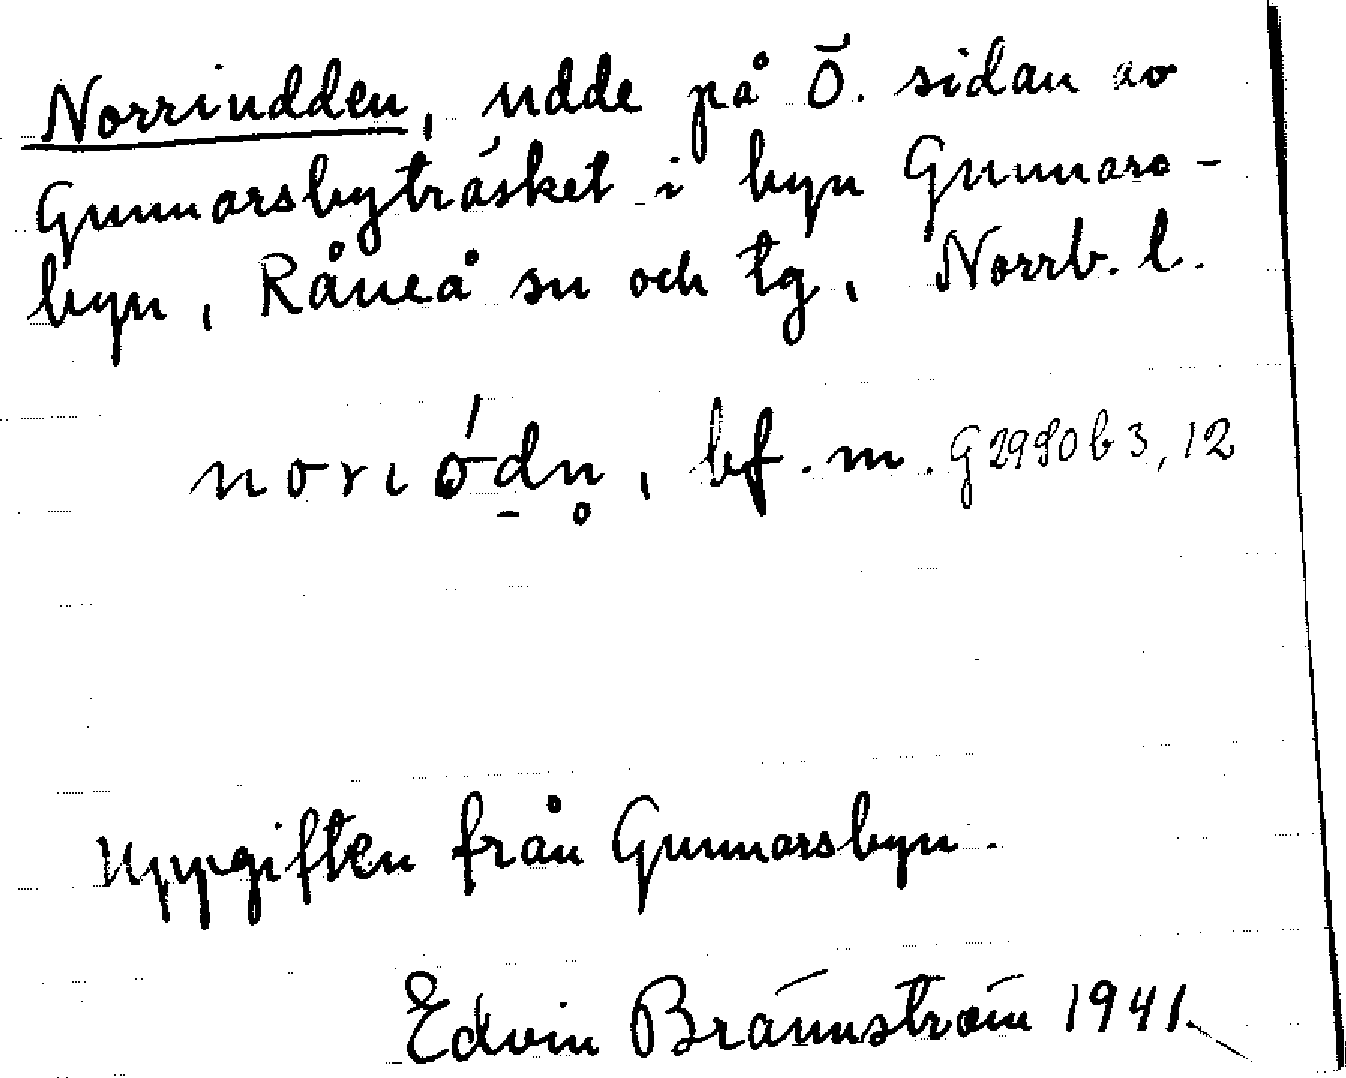 Norriudden, udde på Ö. sidan av
Gunnarsbyträsket i byn Gunnars-
byn, Råneå sn och tg, Norrb. l.
norıódn̥, bf. m. G2990b3, 12
Uppgiften från Gunnarsbyn.
Edvin Brännström 1941.